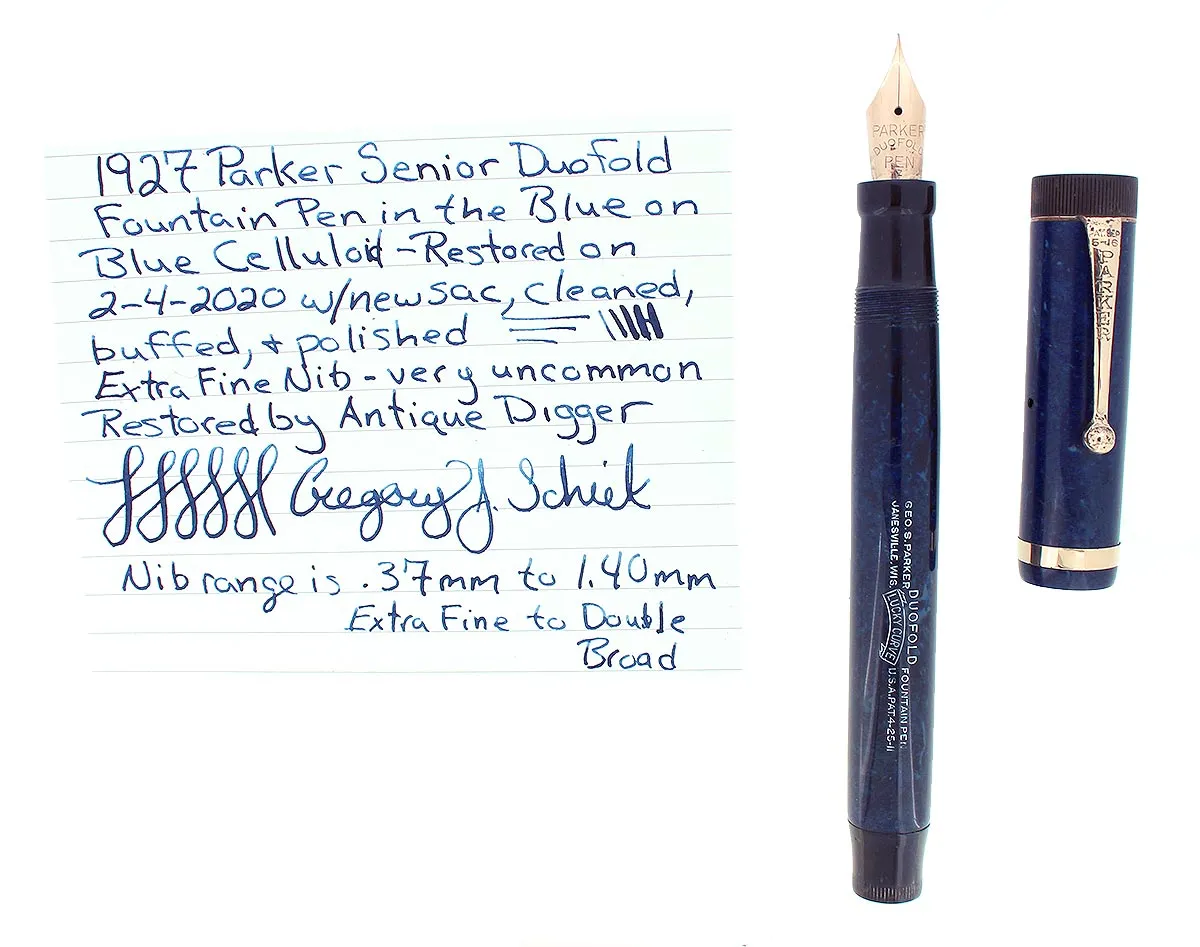 1927 Parker Senior Duofold
Fountain Pen in the Blue on
Blue Celluloid - Restored on
2-4-2020 w/new sac, cleaned,
buffed, + polished
Extra Fine Nib - very uncommon
Restored by Antique Digger
Gregory J.
Nib range is .37mm to 1.40mm
Extra Fine to Double
Broad
PARKER
DUOFOLD
PEN
5-16
PARKER
GEO. S. PARKER DUOFOLD FOUNTAIN PEN
JANESVILLE, WIS. LUCKY CURVE U.S.A. PAT. 4-25-11